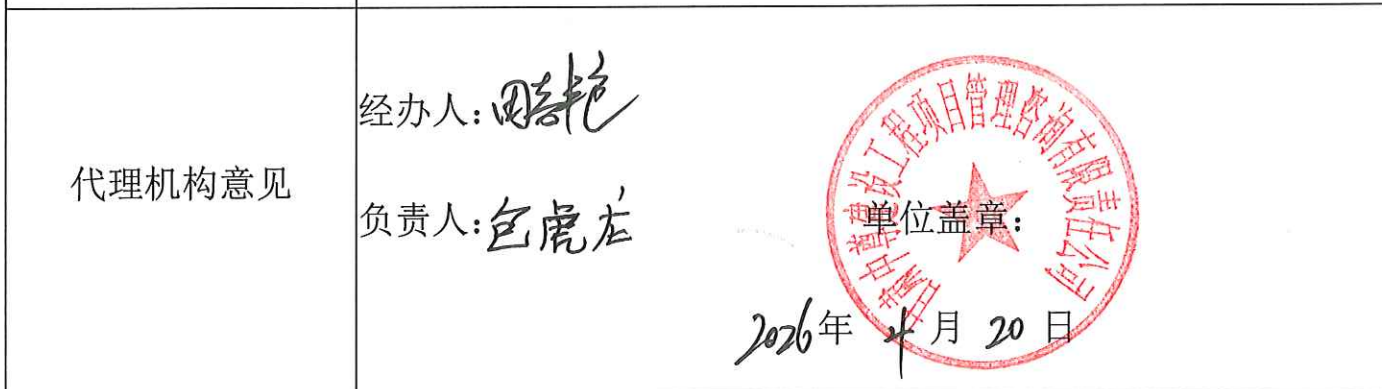 代理机构意见
经办人:田喜艳
负责人:包虎龙
甘肃中青建设工程项目管理咨询有限责任公司
单位盖章:
2026年 4月 20 日